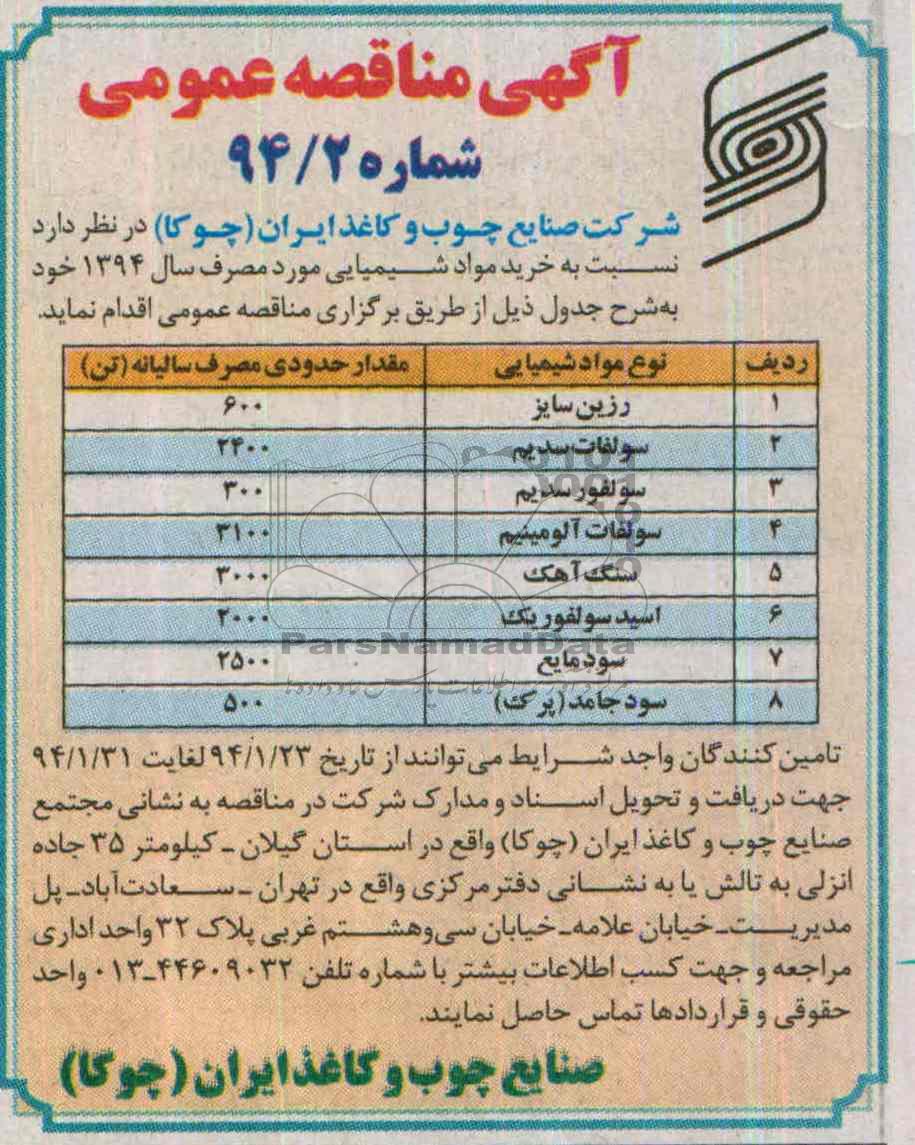 آگهی مناقصه عمومی
شماره ۹۴/۲
شرکت صنایع چوب و کاغذ ایران (چوکا) در نظر دارد
نسبت به خرید مواد شیمیایی مورد مصرف سال ۱۳۹۴ خود
به‌شرح جدول ذیل از طریق برگزاری مناقصه عمومی اقدام نماید.
ردیف نوع مواد شیمیایی مقدار حدودی مصرف سالیانه (تن)
۱ رزین سایز ۶۰۰
۲ سولفات سدیم ۲۴۰۰
۳ سولفور سدیم ۳۰۰
۴ سولفات آلومینیم ۳۱۰۰
۵ سنگ آهک ۳۰۰۰
۶ اسید سولفوریک ۲۰۰۰
ParsNamadData
۷ سود مایع ۲۵۰۰
۸ سود جامد (پرک) ۵۰۰
تامین کنندگان واجد شرایط می‌توانند از تاریخ ۹۴/۱/۲۳ لغایت ۹۴/۱/۳۱
جهت دریافت و تحویل اسناد و مدارک شرکت در مناقصه به نشانی مجتمع
صنایع چوب و کاغذ ایران (چوکا) واقع در استان گیلان ـ کیلومتر ۳۵ جاده
انزلی به تالش یا به نشانی دفتر مرکزی واقع در تهران ـ سعادت‌آباد ـ پل
مدیریت ـ خیابان علامه ـ خیابان سی‌وهشتم غربی پلاک ۳۲ واحد اداری
مراجعه و جهت کسب اطلاعات بیشتر با شماره تلفن ۴۴۶۰۹۰۳۲-۰۱۳ واحد
حقوقی و قراردادها تماس حاصل نمایند.
صنایع چوب و کاغذ ایران (چوکا)